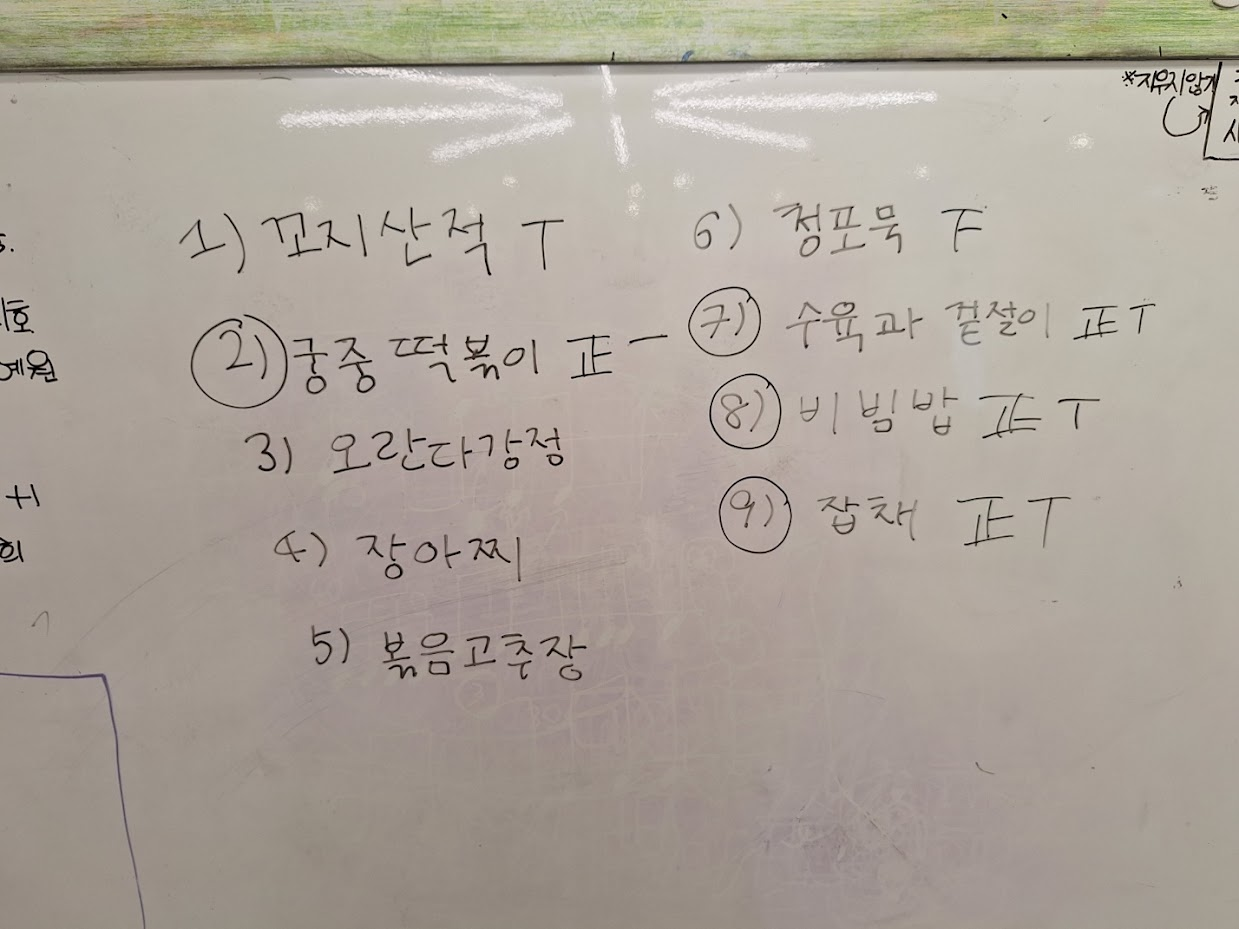 ※지우지않기
1) 꼬지산적 T
2) 궁중떡볶이 正一
3) 오란다강정
4) 장아찌
5) 볶음고추장
6) 청포묵 F
7) 수육과 겉절이 正T
8) 비빔밥 正T
9) 잡채 正T
예원
+1
희